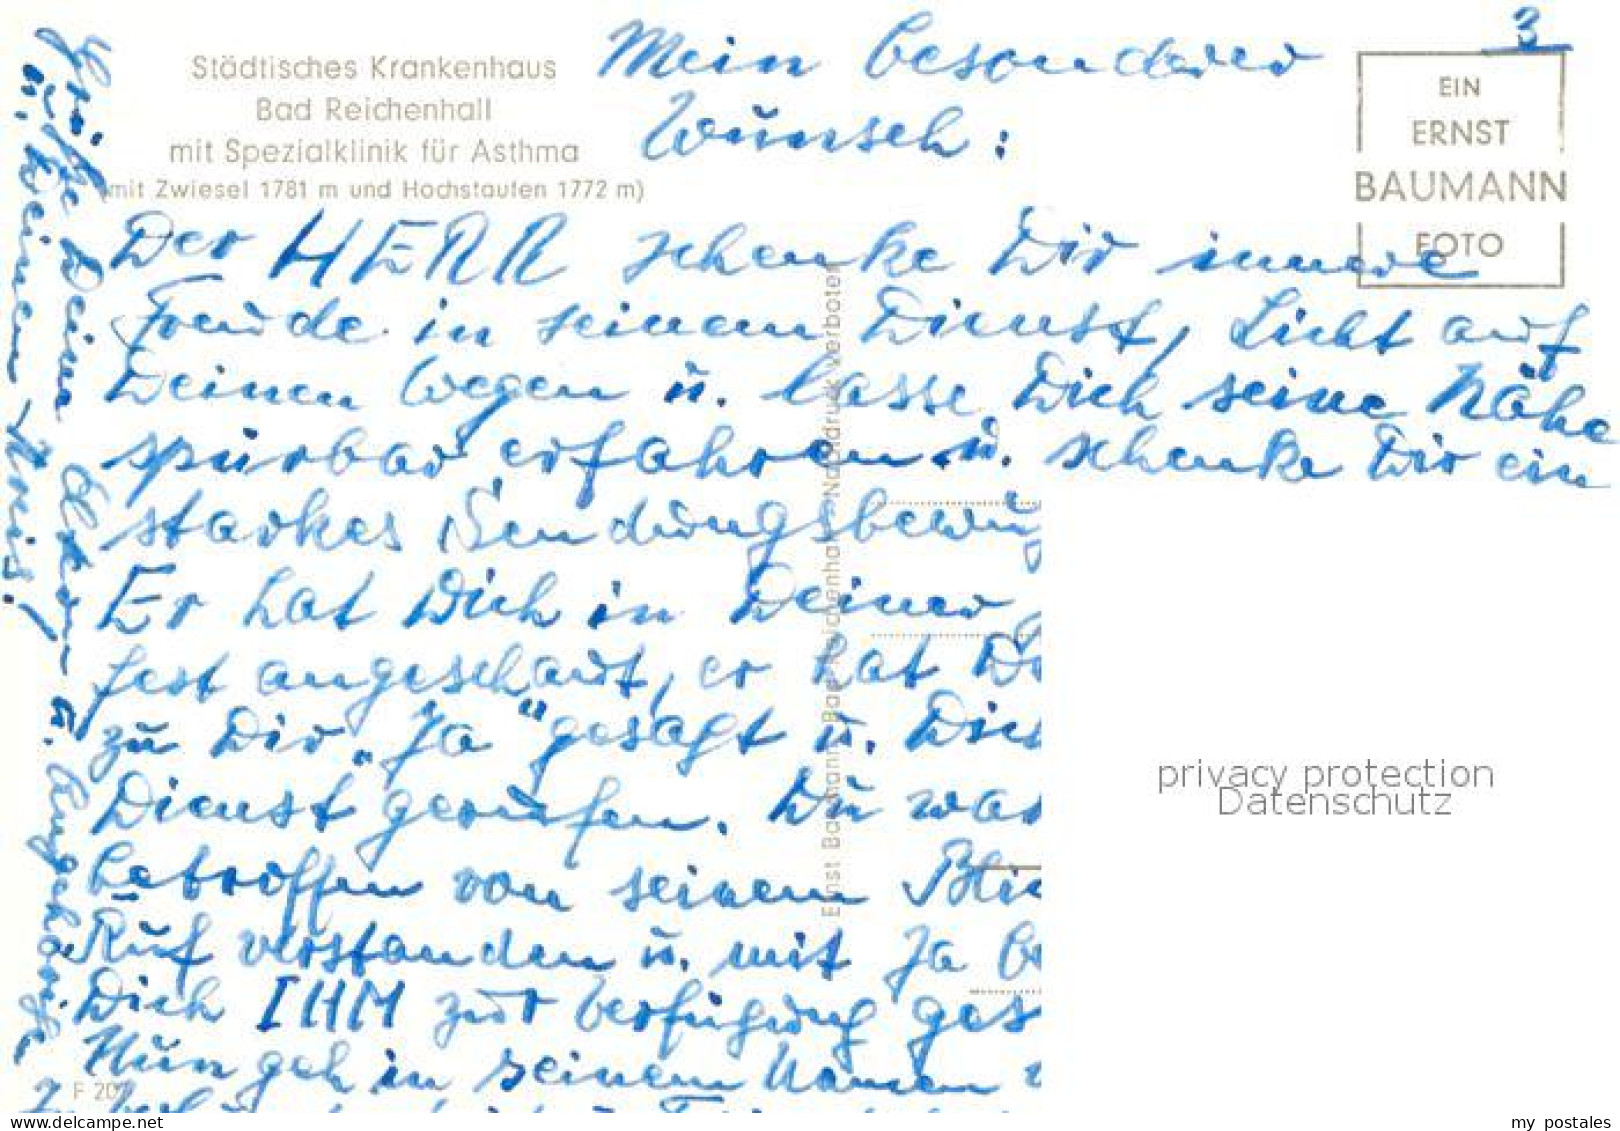 3
Städtisches Krankenhaus
Bad Reichenhall
mit Spezialklinik für Asthma
(mit Zwiesel 1781 m und Hochstaufen 1772 m)
EIN
ERNST
BAUMANN
FOTO
Mein besonderer
Wunsch:
Der HERR schenke Dir innere
Freude in seinem Dienst, Licht auf
Deinen Wegen u. lasse Dich seine Nähe
spürbar erfahren u. schenke Dir ein
starkes Sendungsbewuß
Er hat Dich in Deiner
fest angeschaut, er hat
zu Dir „Ja" gesagt u. Dich
Dienst gerufen. Du war
betroffen von seinem Blic
Ruf verstanden u. mit Ja be
Dich IHM zur Verfügung ges
Nun geh in seinem Namen
Grüße Deine Eltern u. Angehörige
u. Deinen Kreis!
Ernst Baumann Bad Reichenhall Nachdruck verboten
F 20
privacy protection
Datenschutz
www.delcampe.net
my_postales